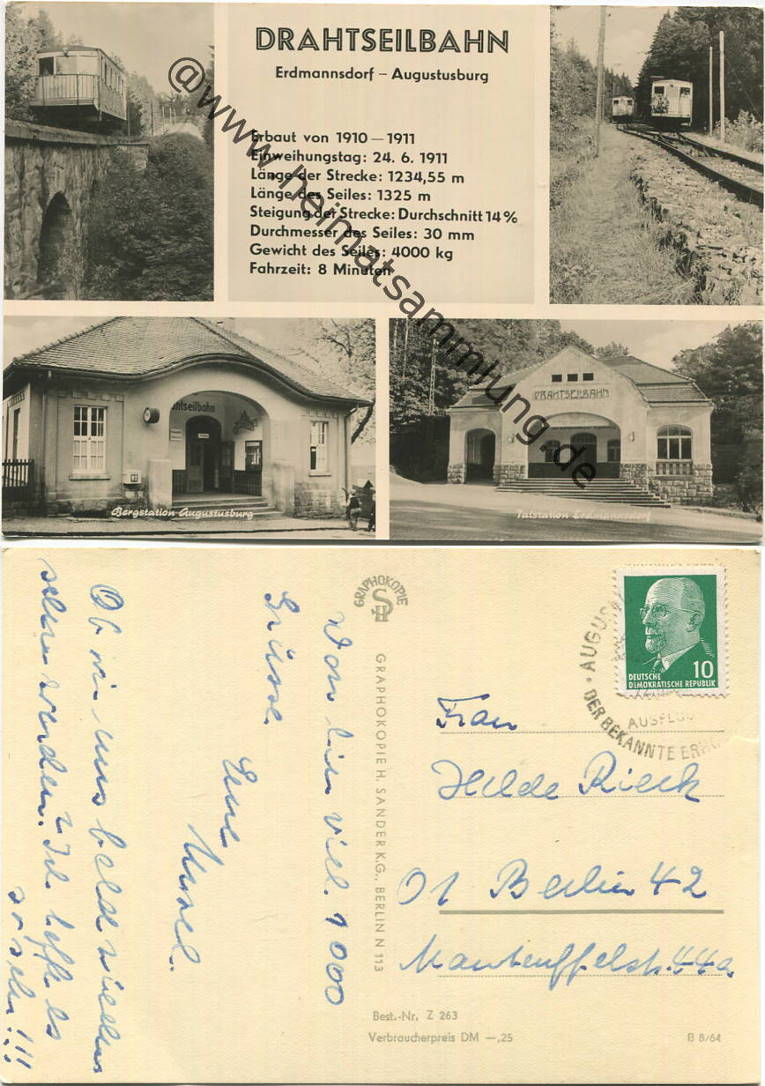 DRAHTSEILBAHN
Erdmannsdorf – Augustusburg
Erbaut von 1910 – 1911
Einweihungstag: 24. 6. 1911
Länge der Strecke: 1234,55 m
Länge des Seiles: 1325 m
Steigung der Strecke: Durchschnitt 14%
Durchmesser des Seiles: 30 mm
Gewicht des Seiles: 4000 kg
Fahrzeit: 8 Minuten
@www.heimatsammlung.de
Drahtseilbahn
Bergstation Augustusburg
DRAHTSEILBAHN
Talstation Erdmannsdorf
Von hier viele 1000
Grüsse
Eure
Ursel.
Ob wir uns bald wieder
sehen werden? Ich hoffe es
so sehr!!!
GRAPHOKOPIE
GRAPHOKOPIE H. SANDER K.G., BERLIN N 113
10
DEUTSCHE
DEMOKRATISCHE REPUBLIK
AUGUS
AUSFLUG
DER BEKANNTE ERHO
Frau
Hilde Rieck
01 Berlin 42
Manteuffelstr. 44a
Best.-Nr. Z 263
Verbraucherpreis DM —,25
B 8/64